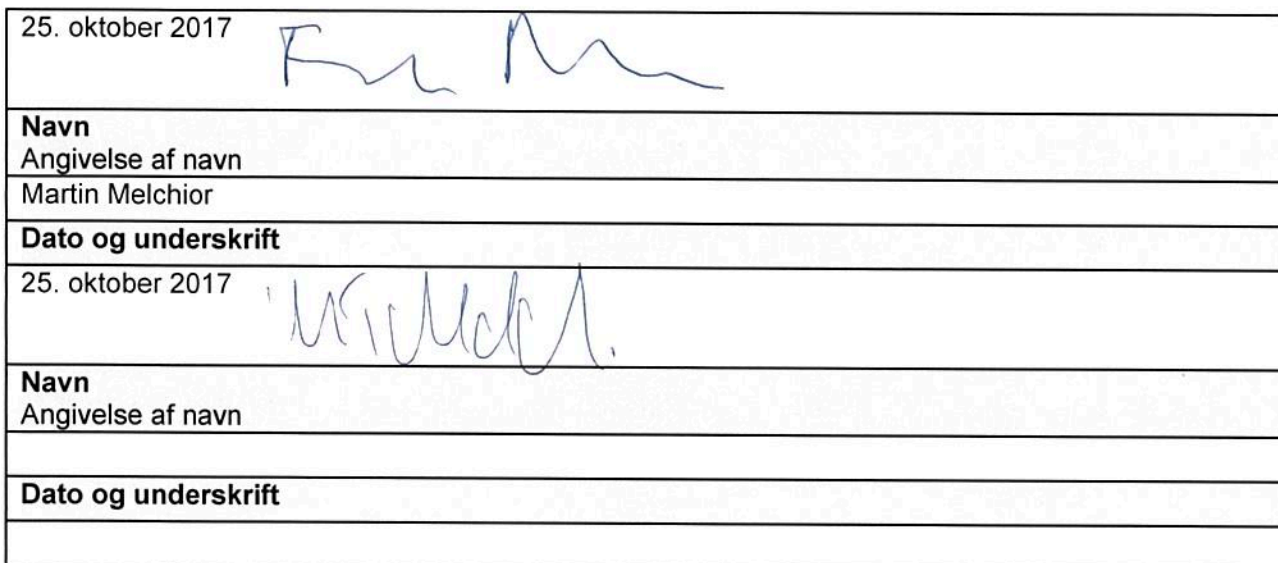 25. oktober 2017
Navn
Angivelse af navn
Martin Melchior
Dato og underskrift
25. oktober 2017
Navn
Angivelse af navn
Dato og underskrift